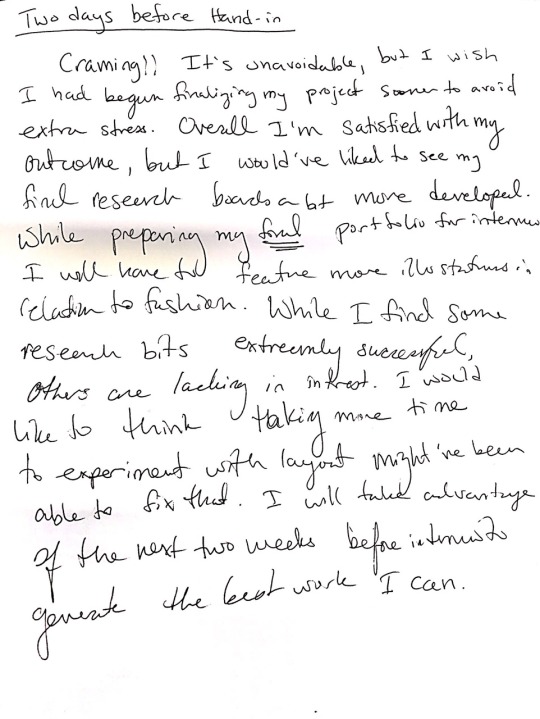 Two days before Hand-in
Craming!! It's unavoidable, but I wish
I had begun finalizing my project sooner to avoid
extra stress. Overall I'm satisfied with my
outcome, but I would've liked to see my
final research boards a bit more developed.
While preparing my final portfolio for
I will have to feature more illustrations in
relation to fashion. While I find some
research bits extreemly successful,
others are lacking in intrest. I would
like to think taking more time
to experiment with layout might've been
able to fix that. I will take advantage
of the next two weeks before
generate the best work I can.